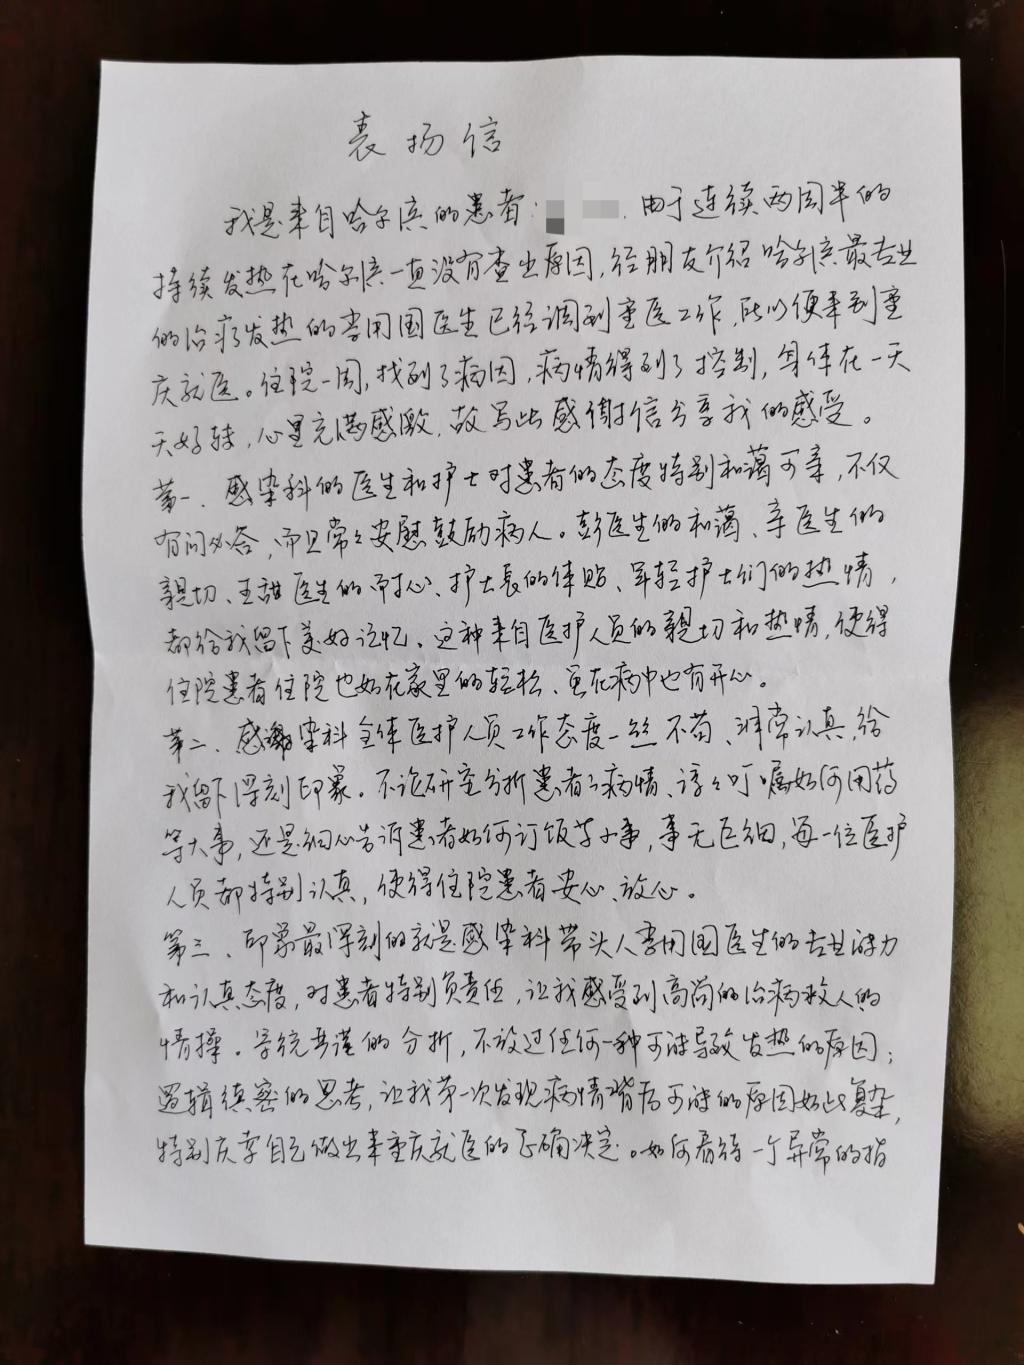 表扬信
我是来自哈尔滨的患者: 由于连续两周半的
持续发热在哈尔滨一直没有查出原因,经朋友介绍哈尔滨最专业
的治疗发热的李用国医生已经调到重医工作,所以便来到重
庆就医。住院一周,找到了病因,病情得到了控制,身体在一天
天好转,心里充满感激,故写此感谢信分享我的感受。
第一、感染科的医生和护士对患者的态度特别和蔼可亲,不仅
有问必答,而且常常安慰鼓励病人。彭医生的和蔼、辛医生的
亲切、王甜医生的耐心、护士长的体贴、年轻护士们的热情,
都给我留下美好记忆。这种来自医护人员的亲切和热情,使得
住院患者住院也如在家里的轻松、虽在病中也有开心。
第二、感染科全体医护人员工作态度一丝不苟、非常认真,给
我留下深刻印象。不论研究分析患者病情、谆谆叮嘱如何用药
等大事,还是细心告诉患者如何订饭等小事,事无巨细,每一位医护
人员都特别认真,使得住院患者安心、放心。
第三、印象最深刻的就是感染科带头人李用国医生的专业能力
和认真态度,对患者特别负责任,让我感受到高尚的治病救人的
情操。系统严谨的分析,不放过任何一种可能导致发热的原因;
逻辑缜密的思考,让我第一次发现病情背后可能的原因如此复杂,
特别庆幸自己做出来重庆就医的正确决定。如何看待一个异常的指